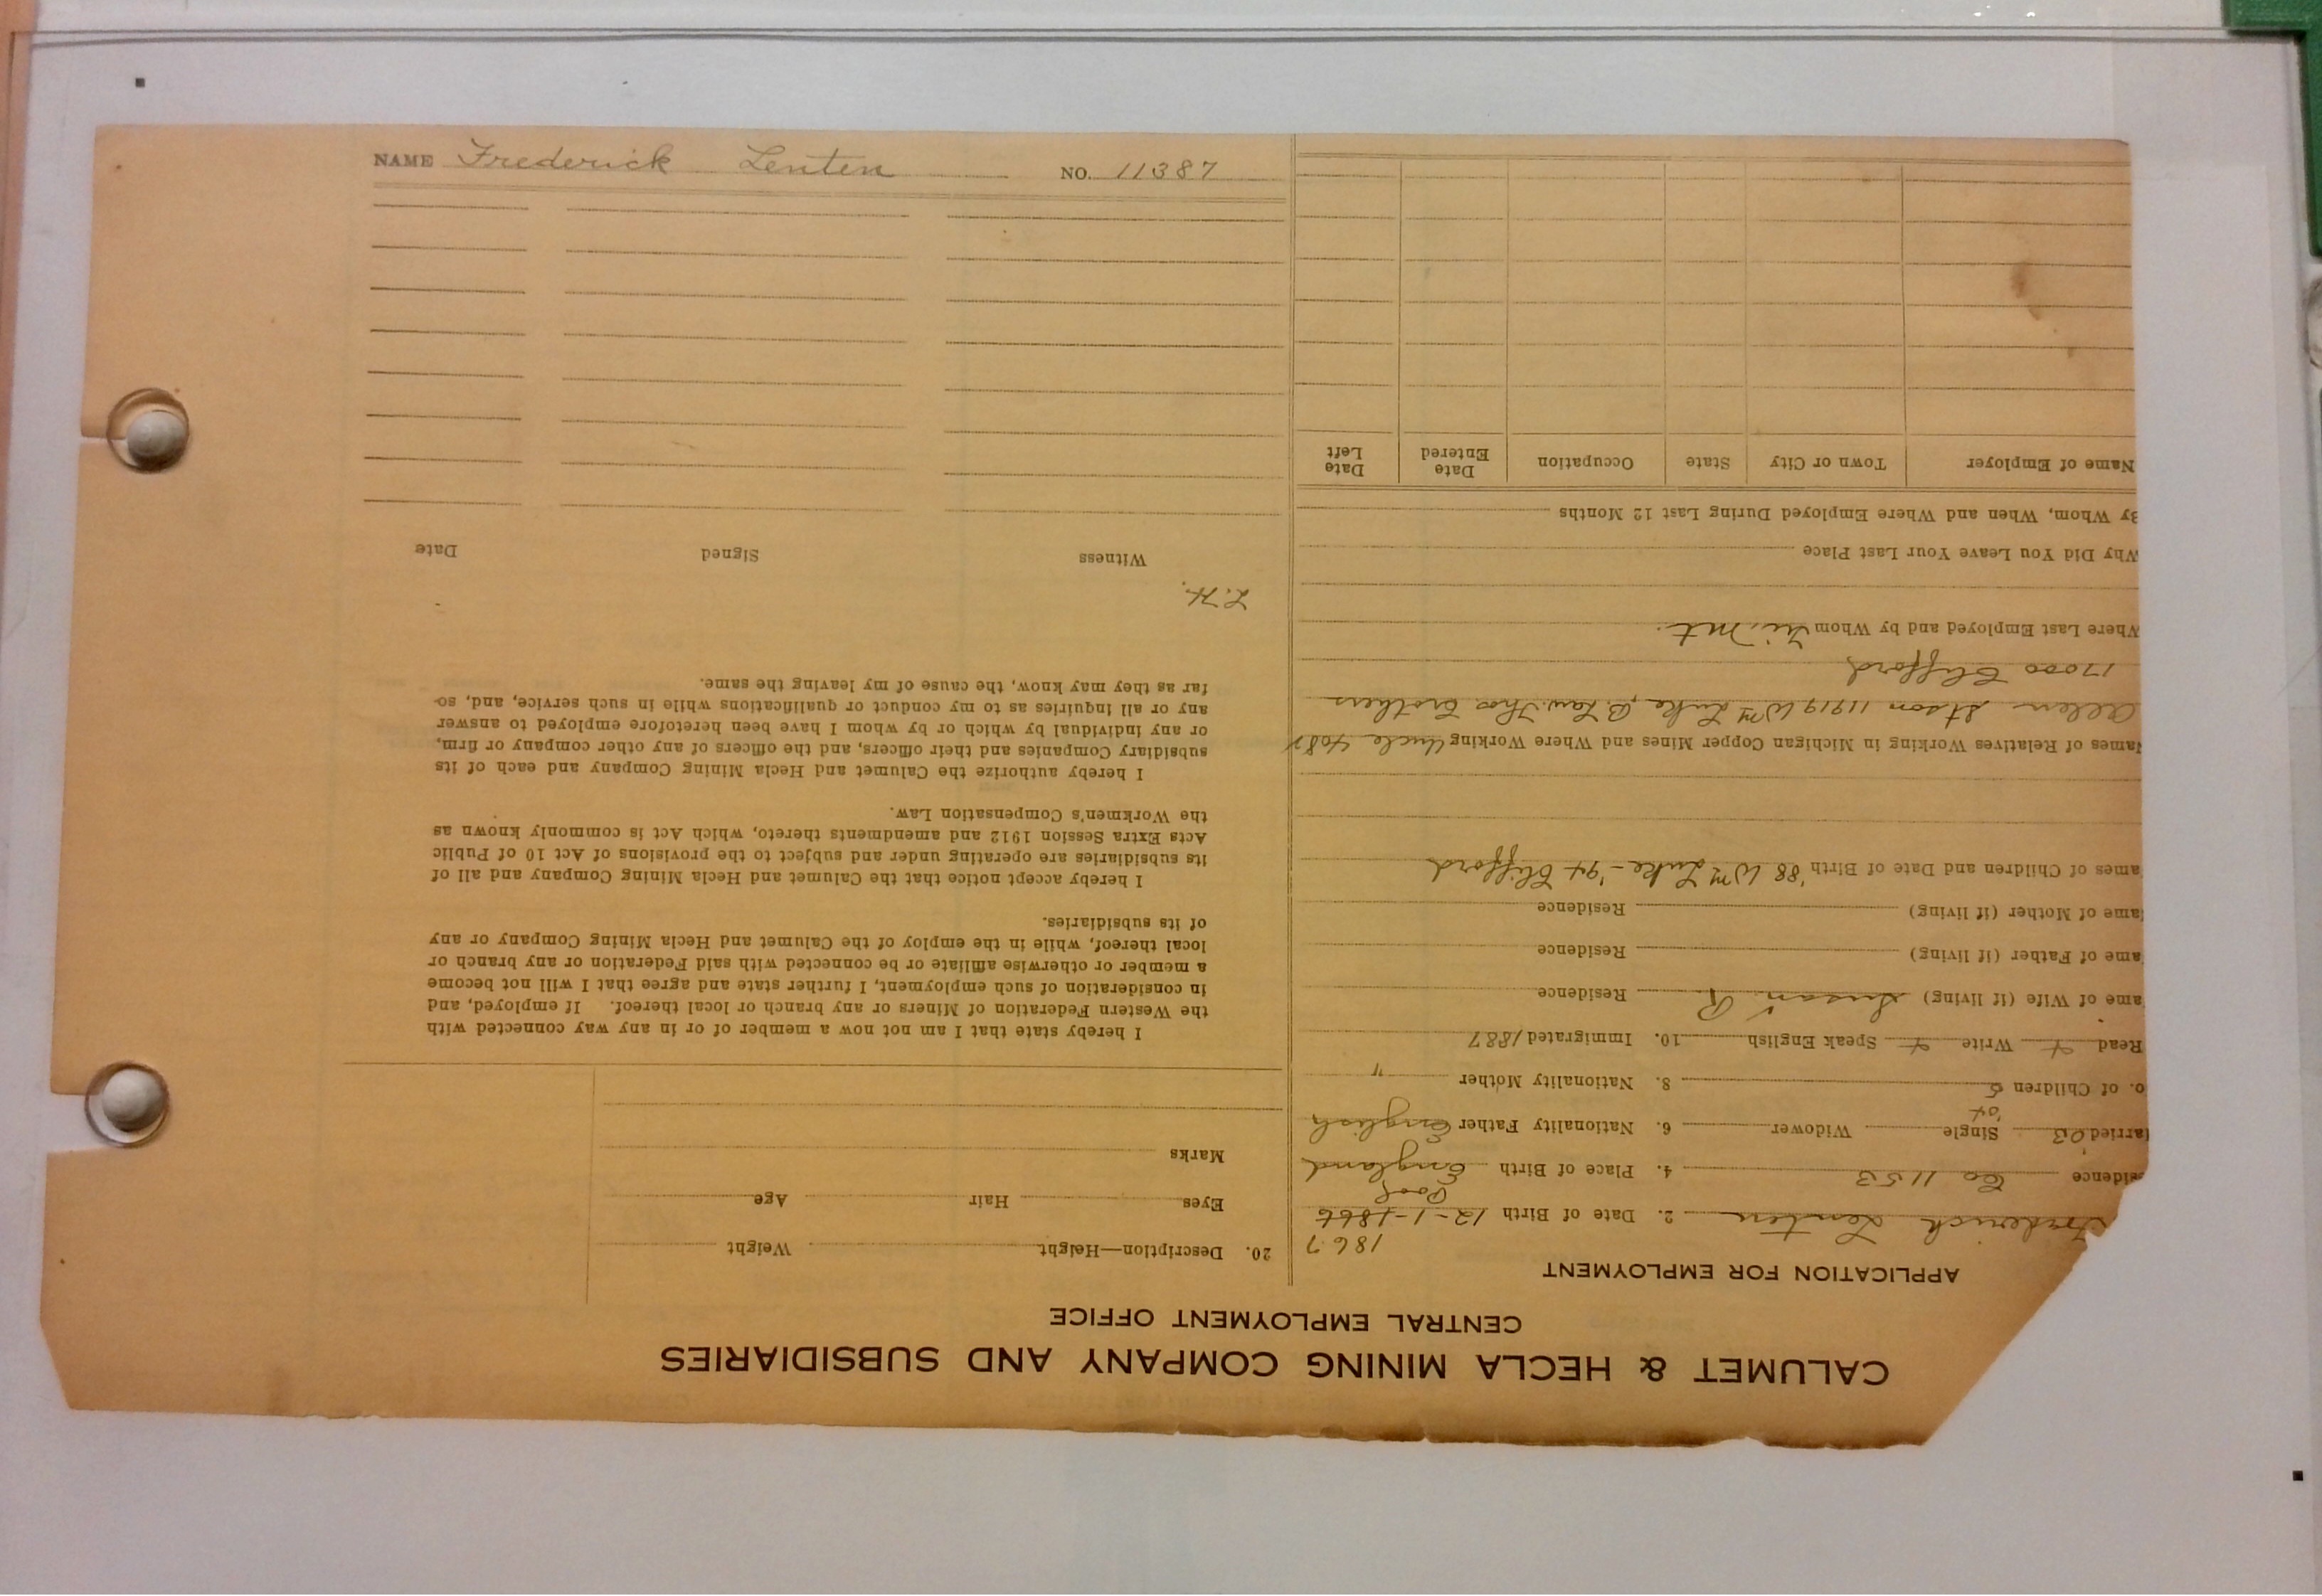 NAME Frederick Lenten NO. 11387
CALUMET & HECLA MINING COMPANY AND SUBSIDIARIES
CENTRAL EMPLOYMENT OFFICE
APPLICATION FOR EMPLOYMENT
1867
Frederick Lenten 2. Date of Birth 12-1-1866
Pool
idence Co 1153 4. Place of Birth England
arried '03 Single Widower 6. Nationality Father English
'04
o. of Children 5 8. Nationality Mother "
Read Write Speak English 10. Immigrated 1887
ame of Wife (if living) Susan R Residence
ame of Father (if living) Residence
ame of Mother (if living) Residence
ames of Children and Date of Birth '88 Wm Luke - '94 Clifford
ames of Relatives Working in Michigan Copper Mines and Where Working Uncle 4087
Allen St son 11919 Wm Luke, B. Law. Thos Crothers
17000 Clifford
Where Last Employed and by Whom Tri. Mt.
Why Did You Leave Your Last Place
By Whom, When and Where Employed During Last 12 Months
Name of Employer Town or City State Occupation Date Entered Date Left
20. Description—Height Weight
Eyes Hair Age
Marks
I hereby state that I am not now a member of or in any way connected with
the Western Federation of Miners or any branch or local thereof. If employed, and
in consideration of such employment, I further state and agree that I will not become
a member or otherwise affiliate or be connected with said Federation or any branch or
local thereof, while in the employ of the Calumet and Hecla Mining Company or any
of its subsidiaries.
I hereby accept notice that the Calumet and Hecla Mining Company and all of
its subsidiaries are operating under and subject to the provisions of Act 10 of Public
Acts Extra Session 1912 and amendments thereto, which Act is commonly known as
the Workmen's Compensation Law.
I hereby authorize the Calumet and Hecla Mining Company and each of its
subsidiary Companies and their officers, and the officers of any other company or firm,
or any individual by which or by whom I have been heretofore employed to answer
any or all inquiries as to my conduct or qualifications while in such service, and, so
far as they may know, the cause of my leaving the same.
L.H.
Witness Signed Date